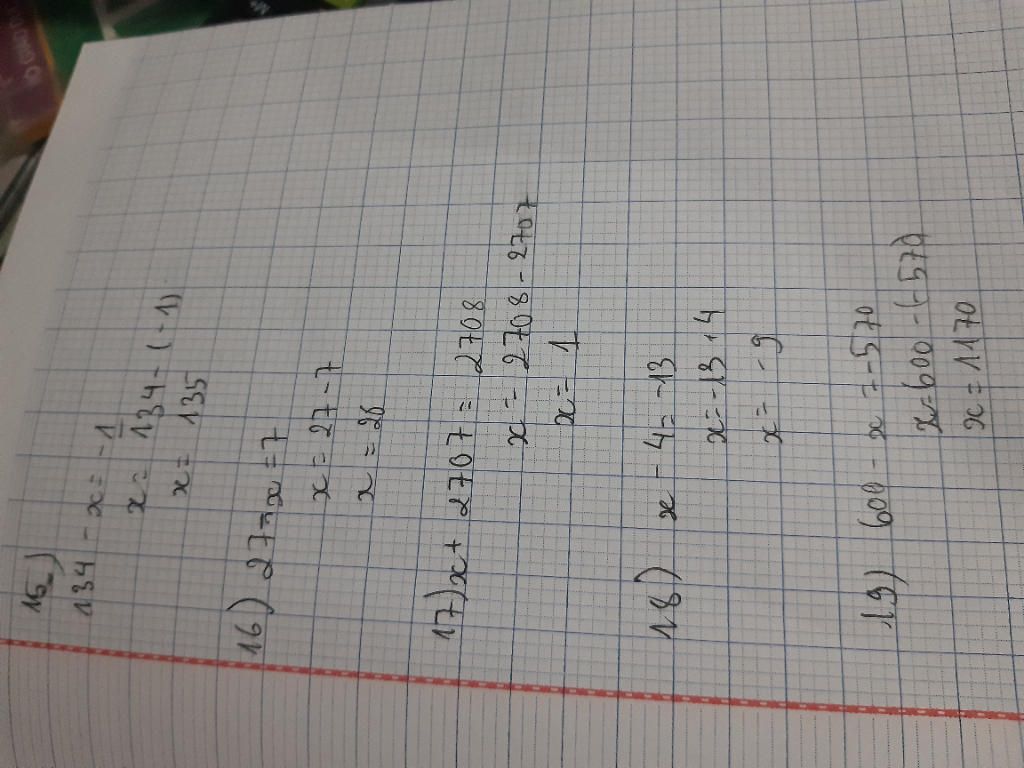 15)
134 - x = -1
x = 134 - (-1)
x = 135
16) 27 - x = 7
x = 27 - 7
x = 26
17) x + 2707 = 2708
x = 2708 - 2707
x = 1
18) x - 4 = -13
x = -13 + 4
x = -9
19) 600 - x = -570
x = 600 - (-570)
x = 1170